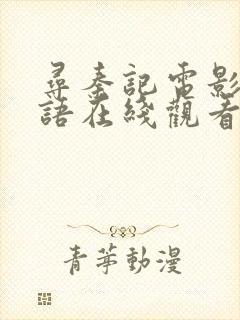 尋秦記電影
語在綫觀看
青苹動漫